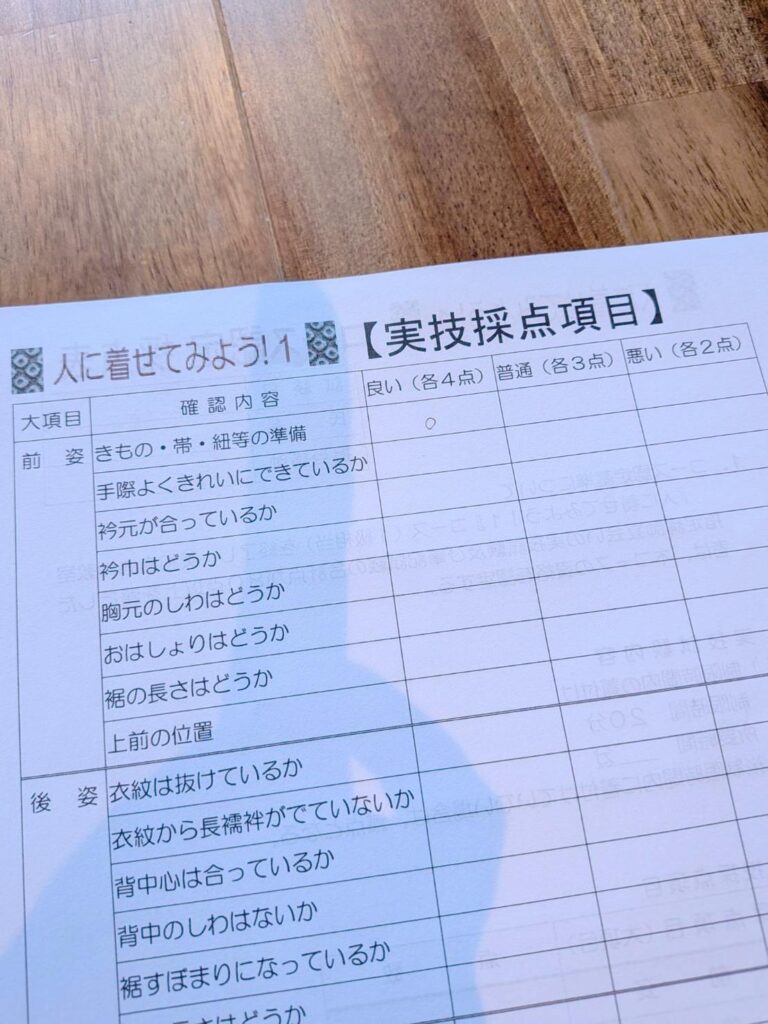 人に着せてみよう!1 【実技採点項目】
大項目 確認内容 良い（各４点） 普通（各３点） 悪い（各２点）
前 姿 きもの・帯・紐等の準備 ○
手際よくきれいにできているか
衿元が合っているか
衿巾はどうか
胸元のしわはどうか
おはしょりはどうか
裾の長さはどうか
上前の位置
後 姿 衣紋は抜けているか
衣紋から長襦袢がでていないか
背中心は合っているか
背中のしわはないか
裾すぼまりになっているか
さはどうか